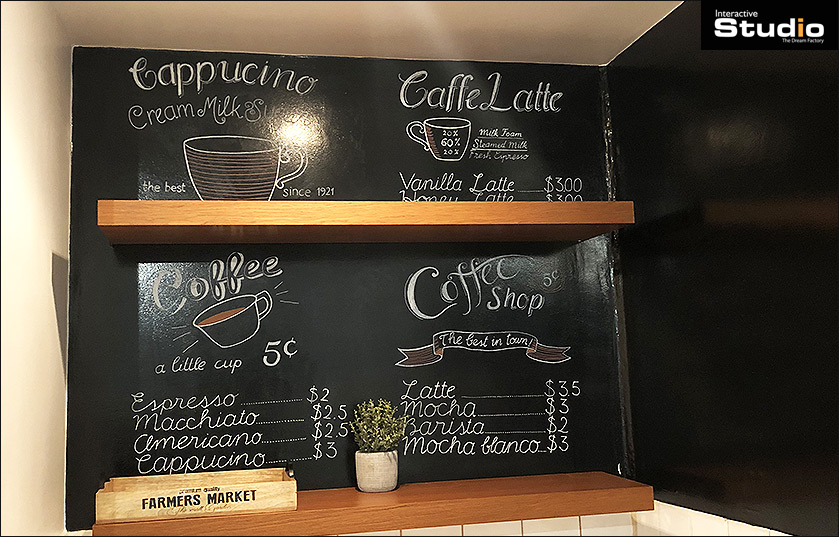 Interactive
Studio
The Dream Factory
Cappucino
Cream Milk &
the best
since 1921
Caffe Latte
20%
60%
20%
Milk Foam
Steamed Milk
Fresh Espresso
Vanilla Latte $3.00
Honey Latte $3.00
Coffee
a little cup 5¢
Coffee
Shop 5¢
The best in town!
Espresso ........ $2
Macchiato ........ $2.5
Americano ........ $2.5
Cappucino ........ $3
Latte ........ $3.5
Mocha ........ $3
Barista ........ $2
Mocha blanco ... $3
Premium Quality
FARMERS MARKET